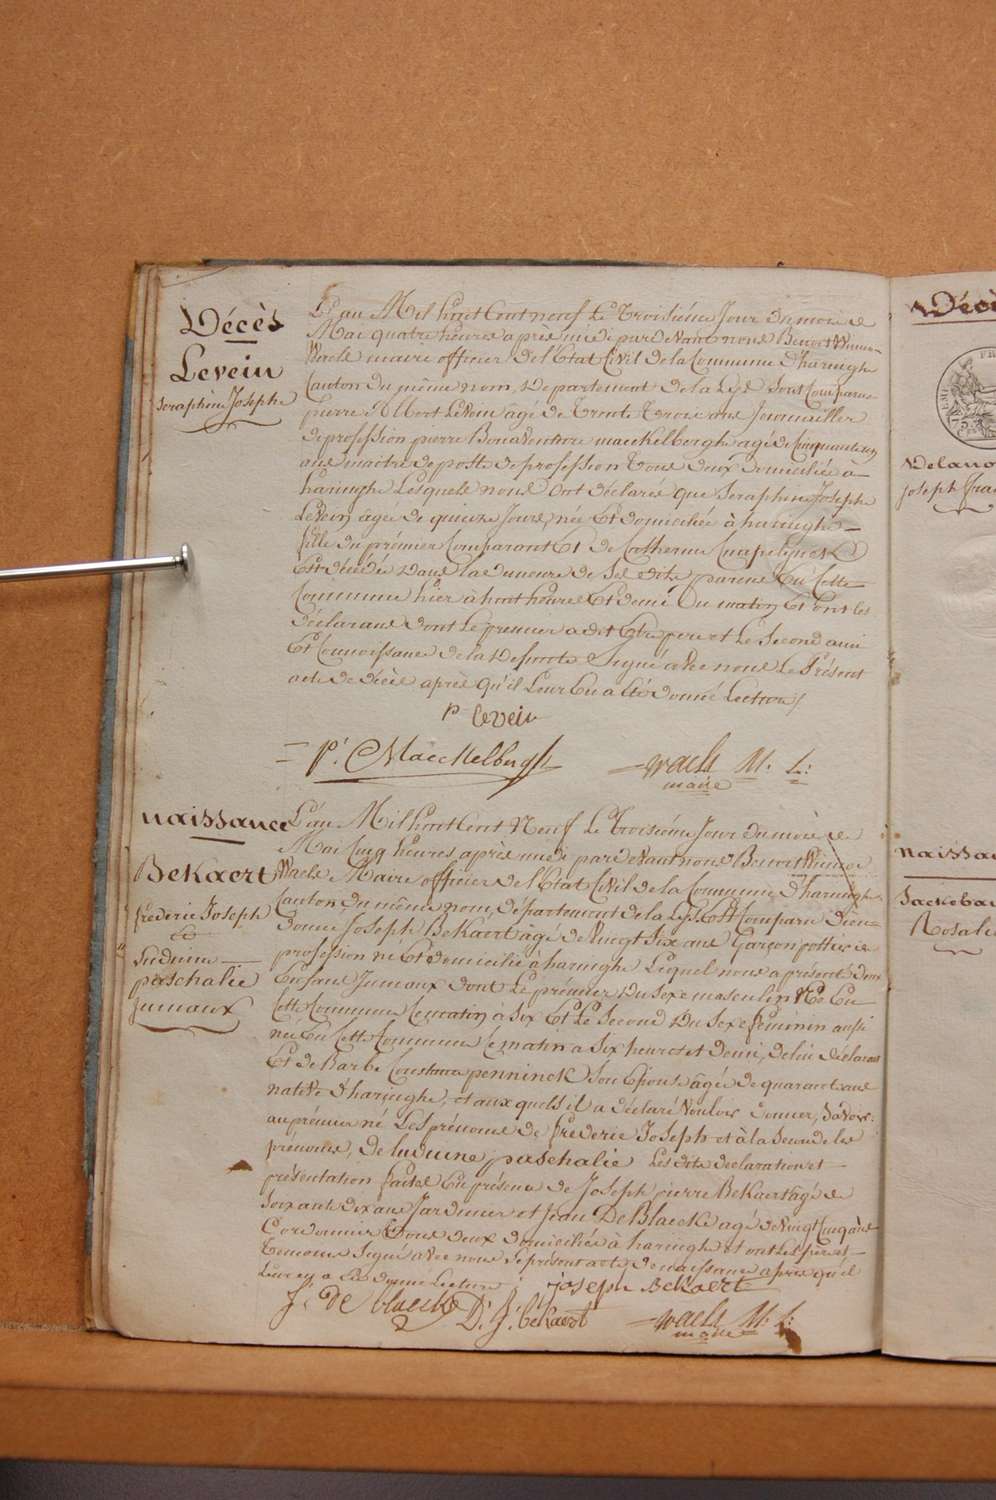 Décès
Levein
Seraphine Josephe
L'an Mil huit Cent neuf Le Troisiéme Jour du mois de
Mai quatre heures après midi pardevant nous Benoit Winnoc
Waels maire officier de l'Etat Civil de la Commune d'haringhe
Canton du même nom, Département de la Lys sont Comparus
pierre Albert Levein âgé de Trente Trois ans Journaillier
de profession pierre Bonaventure maeckelberghe agé de Cinquante
ans maitre de poste de profession Tous deux Domiciliés a
haringhe Lesquels nous ont déclaré que Seraphine Josephe
Levein âgée de quinze Jours, née Et domiciliée à haringhe
fille du prémier Comparant Et de Catherine
Est décédée Dans la demeure de Ses dits parens En Cette
Commune hier à huit heures Et demi Du matin Et ont les
déclarans dont Le premier a dit Etre pere et Le Second ami
Et Connoissance de la Défunte Signé avec nous Le Présent
acte de décès après qu'il Leur En a Eté donné Lecture /
p levein
P. Maeckelbergh
Waels M. L.
maire
naissance
Bekaert
fréderic Joseph
Et
Luduine
paschalie
jumaux
L'an Mil huit Cent Neuf Le Troisiéme Jour du mois de
Mai Cinq heures après midi pardevant nous Benoit Winnoc
Waels Maire officier de l'Etat Civil de la Commune d'haringhe
Canton du même nom, département de la Lys Est Comparu Dieu-
donné Joseph Bekaert âgé de Vingt Six ans Garçon pottier de
profession né Et domicilié à haringhe Lequel nous a présenté Deux
Enfans Jumaux dont Le prémier Du Sexe masculin Né En
Cette Commune Ce matin à Six Et Le Second Du Sexe féminin aussi
née En Cette Commune Ce matin a Six heures et demi, de lui déclarant
Et de Barbe Constance penninck Son Epouse âgée de quarante ans
native d'haringhe, et aux quels il a déclaré Vouloir donner, Savoir:
au prémier né Les prénoms de fréderic Joseph et à la Seconde les
prénoms, de luduine paschalie Les dits déclaration et
présentation faites En présence de Joseph pierre Bekaert âgé de
Soixante dix ans Jardinier et Jean De Blaecke agé de Vingt Cinq ans
Cordonnier Tous deux domiciliés à haringhe et ont Les pere et
Temoins Signé avec nous le présent acte de naissance après qu'il
Leur en a Eté donné Lecture
joseph Bekaert
J. de blaecke
D. J. bekaert
Waels M. L.
maire
Décès
Delano
joseph fra
naissa
Sackebau
Rosalie